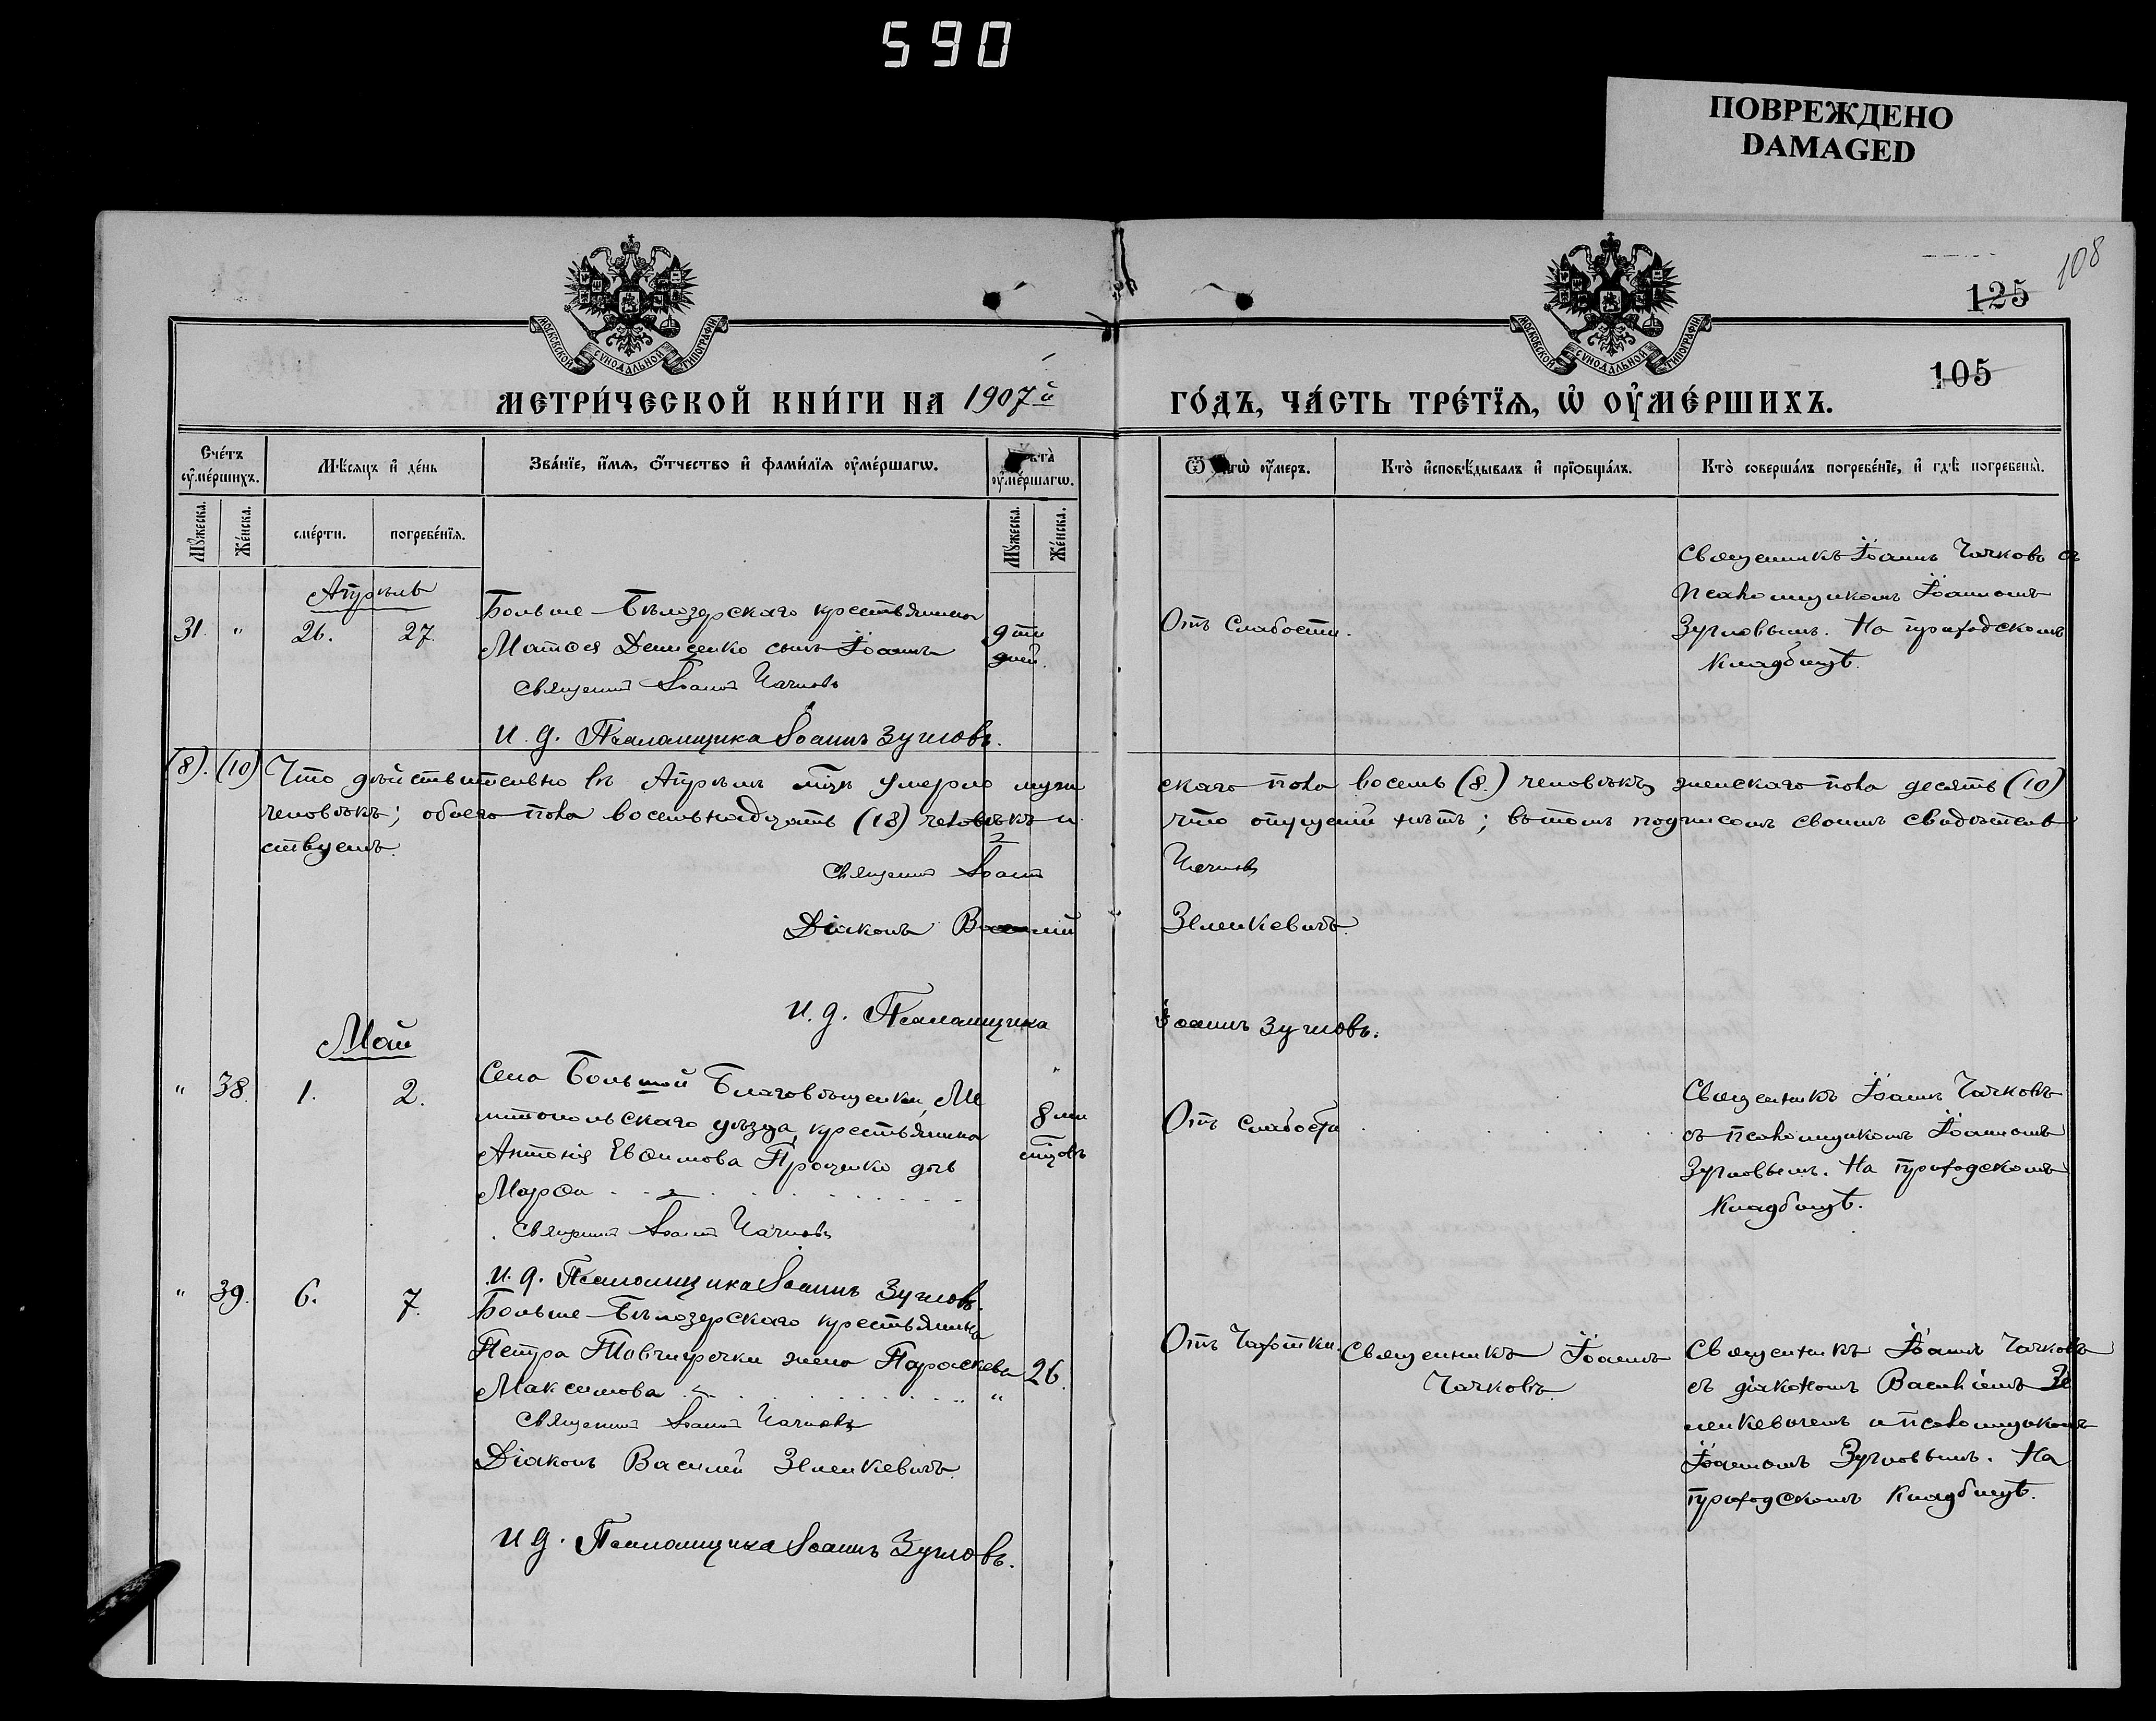 590
ПОВРЕЖДЕНО
DAMAGED
108
125
105
МОСКОВСКОЙ СѴНОДАЛЬНОЙ ТИПОГРАФІИ
МОСКОВСКОЙ СѴНОДАЛЬНОЙ ТИПОГРАФІИ
МЕТРИ́ЧЕСКОЙ КНИ́ГИ НА 1907й
ГО́ДЪ, ЧА́СТЬ ТРЕ́ТЇѦ, Ѡ҆ ОУ҆МЕ́РШИХЪ.
Сче́тъ оу҆ме́ршихъ.
Мꙋ́жеска.
Же́нска.
Мѣ́сѧцъ и҆ де́нь
сме́рти.
погребе́нїѧ.
Зва́нїе, и҆́мѧ, ѻ҆́тчество и҆ фами́лїѧ оу҆ме́ршагѡ.
Лѣта̀ оу҆ме́ршагѡ.
Мꙋ́жеска.
Же́нска.
Ѿ чегѡ̀ оу҆́меръ.
Кто̀ и҆сповѣ́дывалъ и҆ прїѡбща́лъ.
Кто̀ соверша́лъ погребе́нїе, и҆ гдѣ̀ погребены̀.
Апрѣль
31. " 26. 27.
Больше-Бѣлозерскаго крестьянина
Матѳея Денисенко сынъ Іоаннъ
9ти
дней.
Священникъ Іоаннъ Чачковъ
И. д. Псаломщика Іоаннъ Зугловъ.
Отъ слабости.
Священникъ Іоаннъ Чачковъ съ
псаломщикомъ Іоанномъ
Зугловымъ. На приходскомъ
кладбищѣ.
(8). (10) Что дѣйствительно въ Апрѣлѣ мцѣ умерло муж
скаго пола восемь (8.) человѣкъ, женскаго пола десять (10)
человѣкъ; обоего пола восемьнадцать (18) человѣкъ и
что опущеній нѣтъ; въ томъ подписомъ своимъ свидѣтель
ствуемъ.
Священникъ Іоаннъ
Чачковъ
Діаконъ Василій
Зеленкевичъ.
И. д. Псаломщика
Іоаннъ Зугловъ.
Май
" 38. 1. 2.
Села Большой Благовѣщенки, Ме
литопольскаго уѣзда, крестьянина
Антонія Евѳимова Проценко дочь
Марѳа
"
8 ми
мцовъ
Священникъ Іоаннъ Чачковъ
И. д. Псаломщика Іоаннъ Зугловъ.
Отъ слабости
Священникъ Іоаннъ Чачковъ
съ псаломщикомъ Іоанномъ
Зугловымъ. На приходскомъ
кладбищѣ.
" 39. 6. 7.
Больше-Бѣлозерскаго крестьянина
Петра Товчигречки жена Параскева
Максимова
" 26.
Священникъ Іоаннъ Чачковъ
Діаконъ Василій Зеленкевичъ.
И. д. Псаломщика Іоаннъ Зугловъ.
Отъ чахотки.
Священникъ Іоаннъ
Чачковъ
Священникъ Іоаннъ Чачковъ
съ діакономъ Василіемъ Зе
ленкевичемъ и псаломщикомъ
Іоанномъ Зугловымъ. На
приходскомъ кладбищѣ.